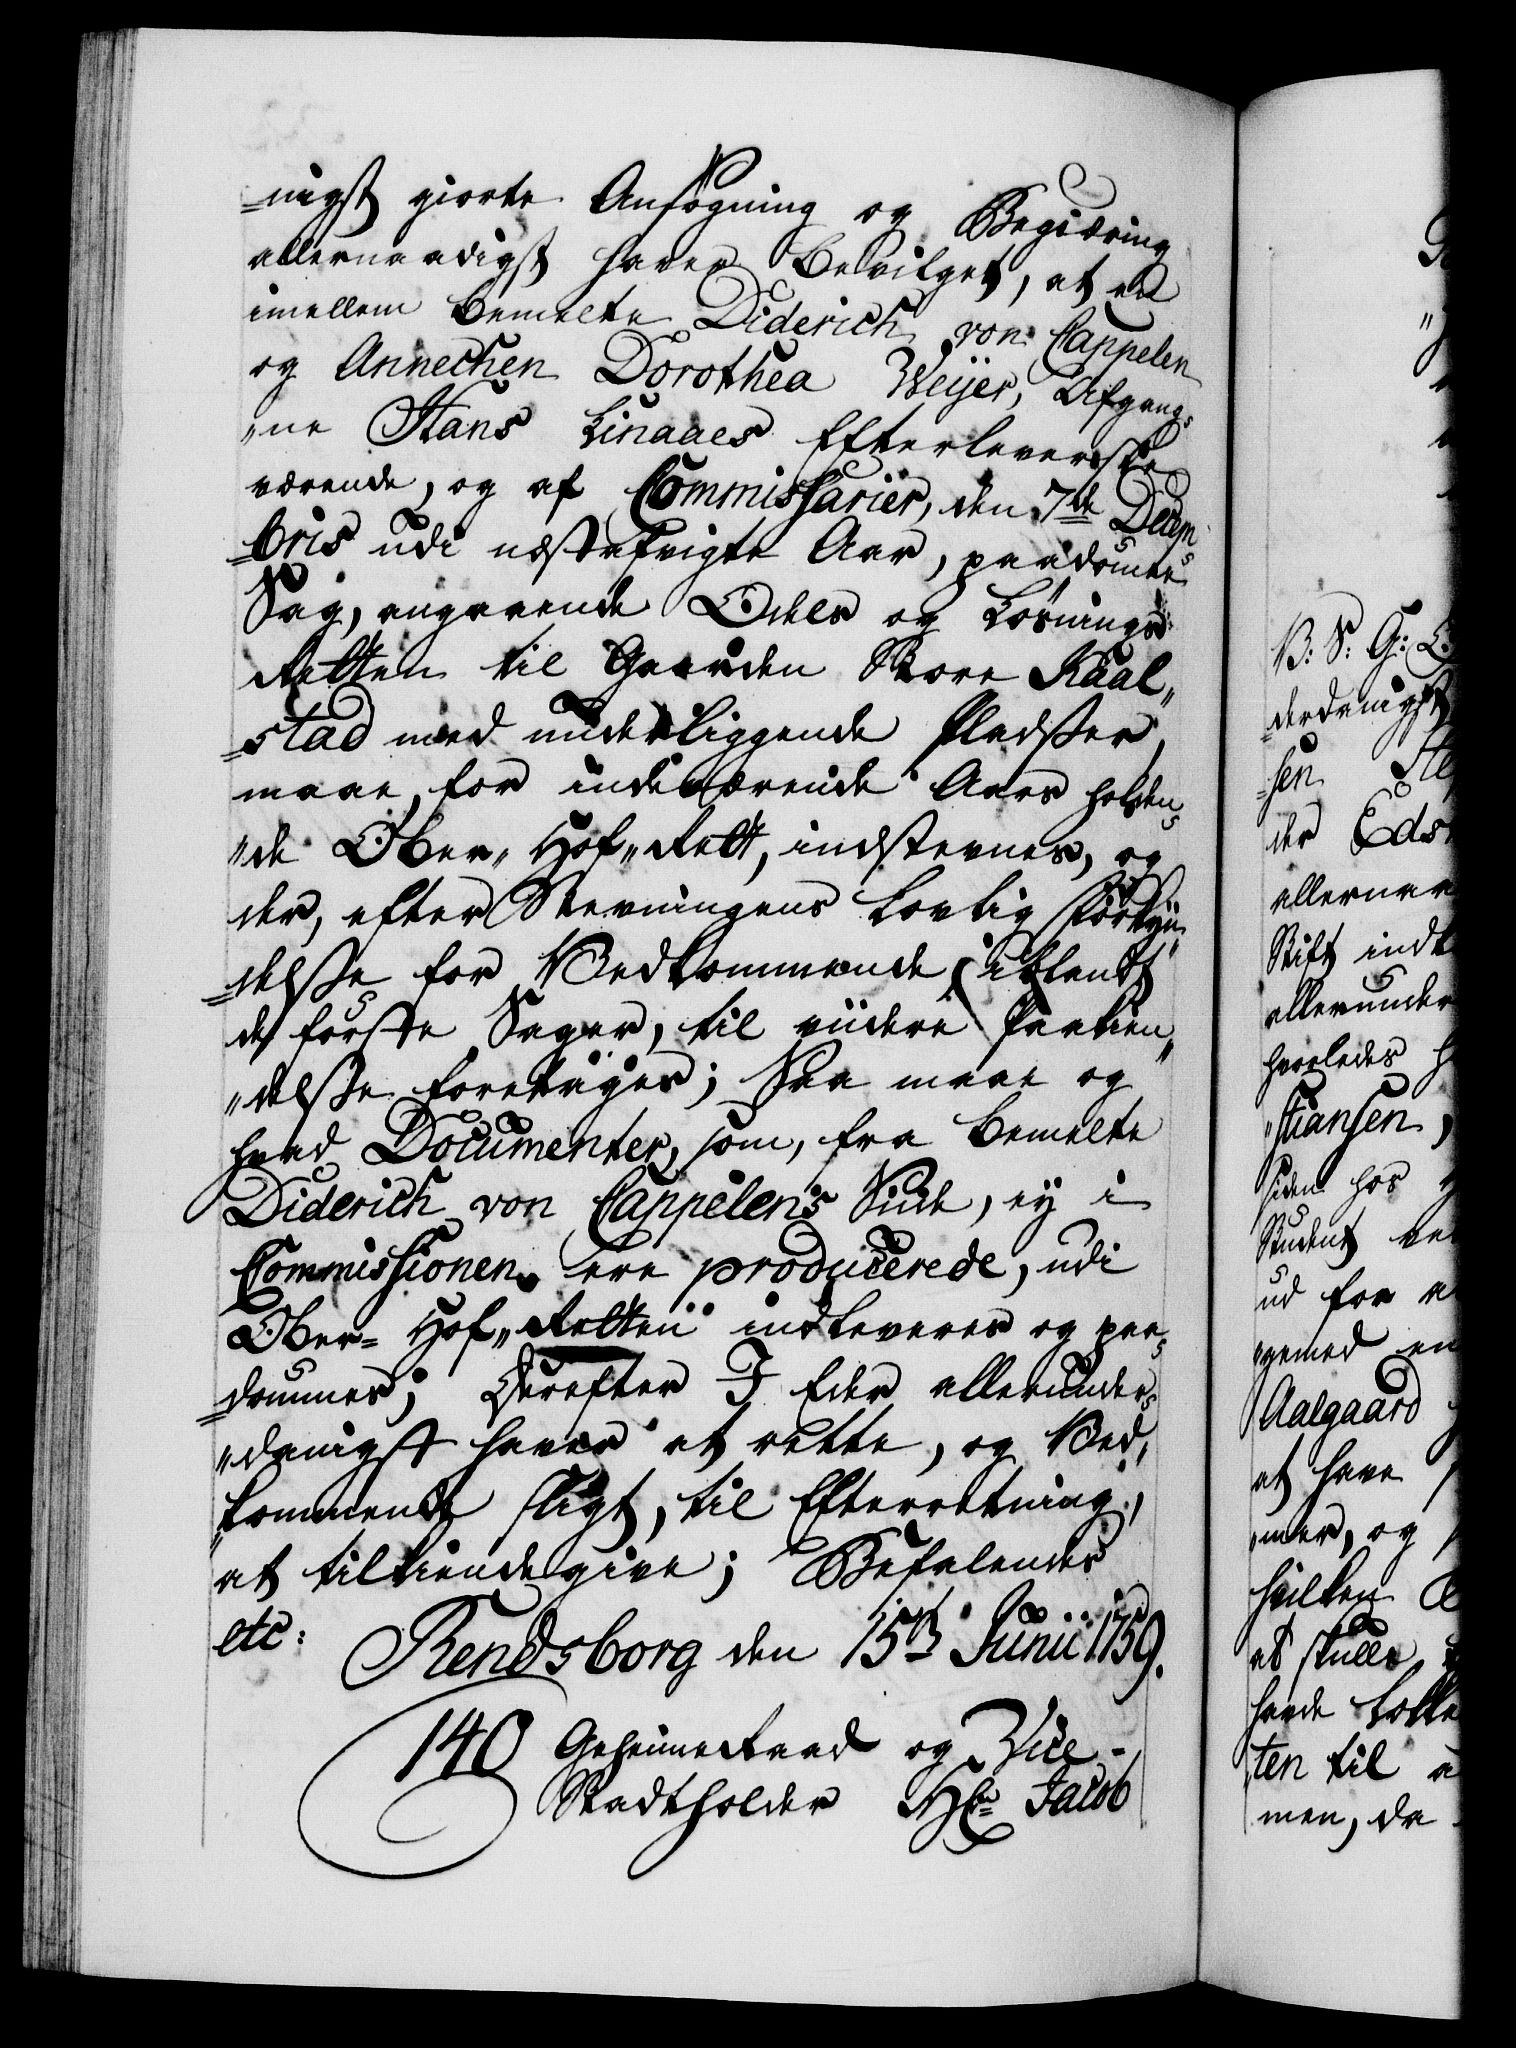 =nigst giorte Ansøgning og Begiæring
allernaadigst haver bevilget, at en
imellem bemelte Diderich von Cappelen
og Annechen Dorothea Weijer, Afgang=
"ne Hans Linaaes Efterleverske
værende, og af Commissarier, den 7de Decem=
=bris udi næstafvigte Aar, paadømte
Sag, angaaende Odels og Løsnings-
Retten til Gaarden Store Kaal„
=stad med underliggende Pladser,
maae, for indeværende Aars holden=
„de Ober„ Hof„Rett, indstevnes, og
der, efter Stevningens lovlig Forkyn„
=delsse for Vedkommende, iblandt
de første Sager, til viidere Paakien„
„delsse foretages; Saa maae og
hvad Documenter, som, fra bemelte
Diderich von Cappelens Side, ey i
Commissionen ere producerede, udi
Ober= Hof„Retten indleveres og paa=
=dømmes; Derefter I Eder allerunder=
„danigst haver at rette, og Ved„
„kommende sligt, til Efterretning,
at tilkiendegive; Befalendes
etc: Rendsborg den 15de Junii 1759.
140 Geheimeraad og Vice-
Stadtholder Hr Jacob
B: S: G: L:
derdanigst
=sen
der Eds
allernaa
Stift indk
allerunder
hvorledes
"stiansen,
siden hos
Student
ud for
"gemed en
Aalgaard
at have
"mer, og
hvilken
at skulle
havde
"ten til
men, da